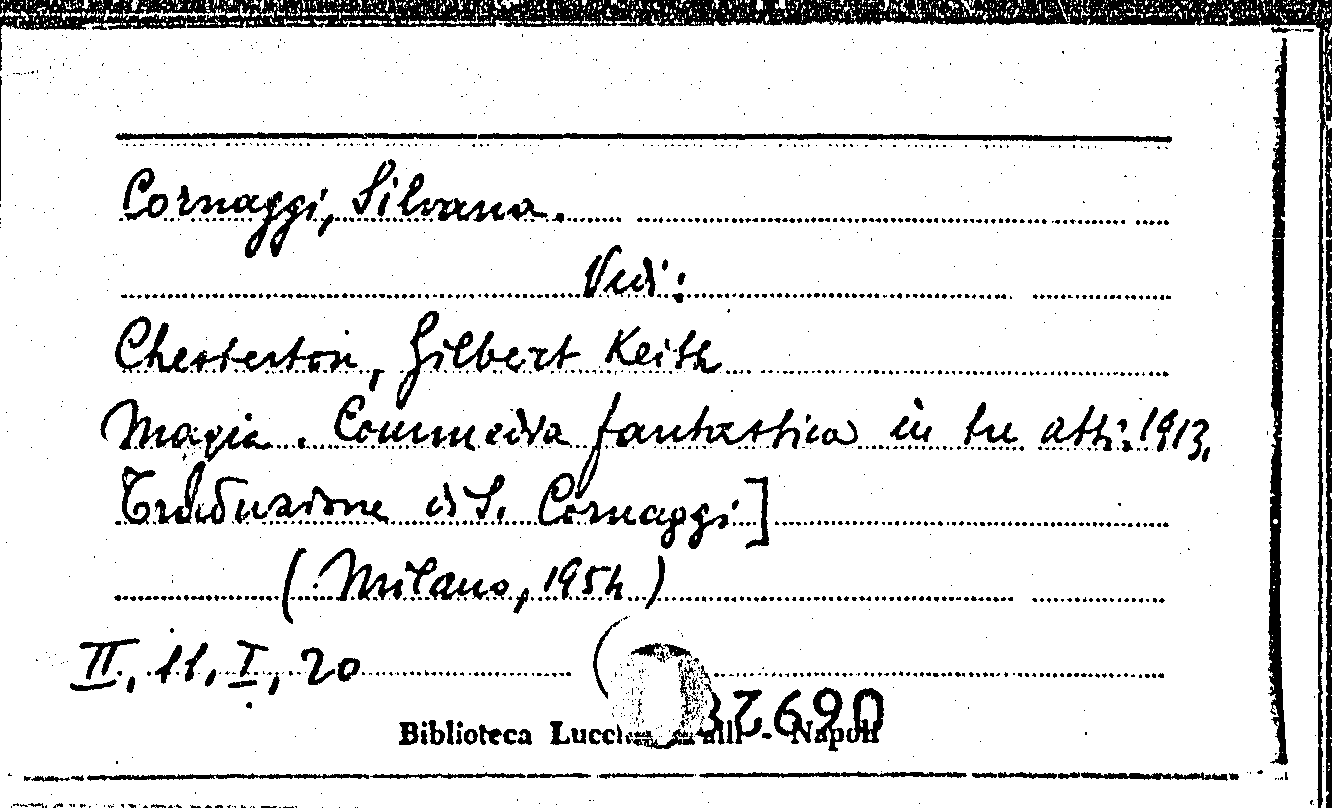 Cornaggi, Silvana.
Vedi:
Chesterton, Gilbert Keith
Magia. Commedia fantastica in tre atti. 1913.
Traduzione di S. Cornaggi]
(Milano, 1954)
II, 11, I, 20
Biblioteca - Napoli